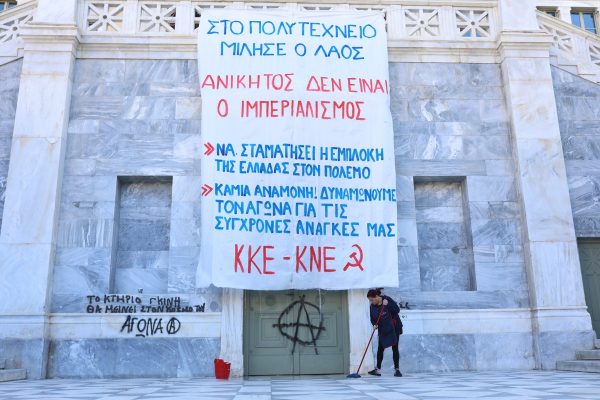 ΣΤΟ ΠΟΛΥΤΕΧΝΕΙΟ
ΜΙΛΗΣΕ Ο ΛΑΟΣ
ΑΝΙΚΗΤΟΣ ΔΕΝ ΕΙΝΑΙ
Ο ΙΜΠΕΡΙΑΛΙΣΜΟΣ
» ΝΑ ΣΤΑΜΑΤΗΣΕΙ Η ΕΜΠΛΟΚΗ
ΤΗΣ ΕΛΛΑΔΑΣ ΣΤΟΝ ΠΟΛΕΜΟ
» ΚΑΜΙΑ ΑΝΑΜΟΝΗ! ΔΥΝΑΜΩΝΟΥΜΕ
ΤΟΝ ΑΓΩΝΑ ΓΙΑ ΤΙΣ
ΣΥΓΧΡΟΝΕΣ ΑΝΑΓΚΕΣ ΜΑΣ
ΚΚΕ - ΚΝΕ
ΤΟ ΚΤΗΡΙΟ ΓΚΙΝΗ
ΘΑ ΜΕΙΝΕΙ ΣΤΟΝ
ΑΓΩΝΑ Ⓐ
Ⓐ